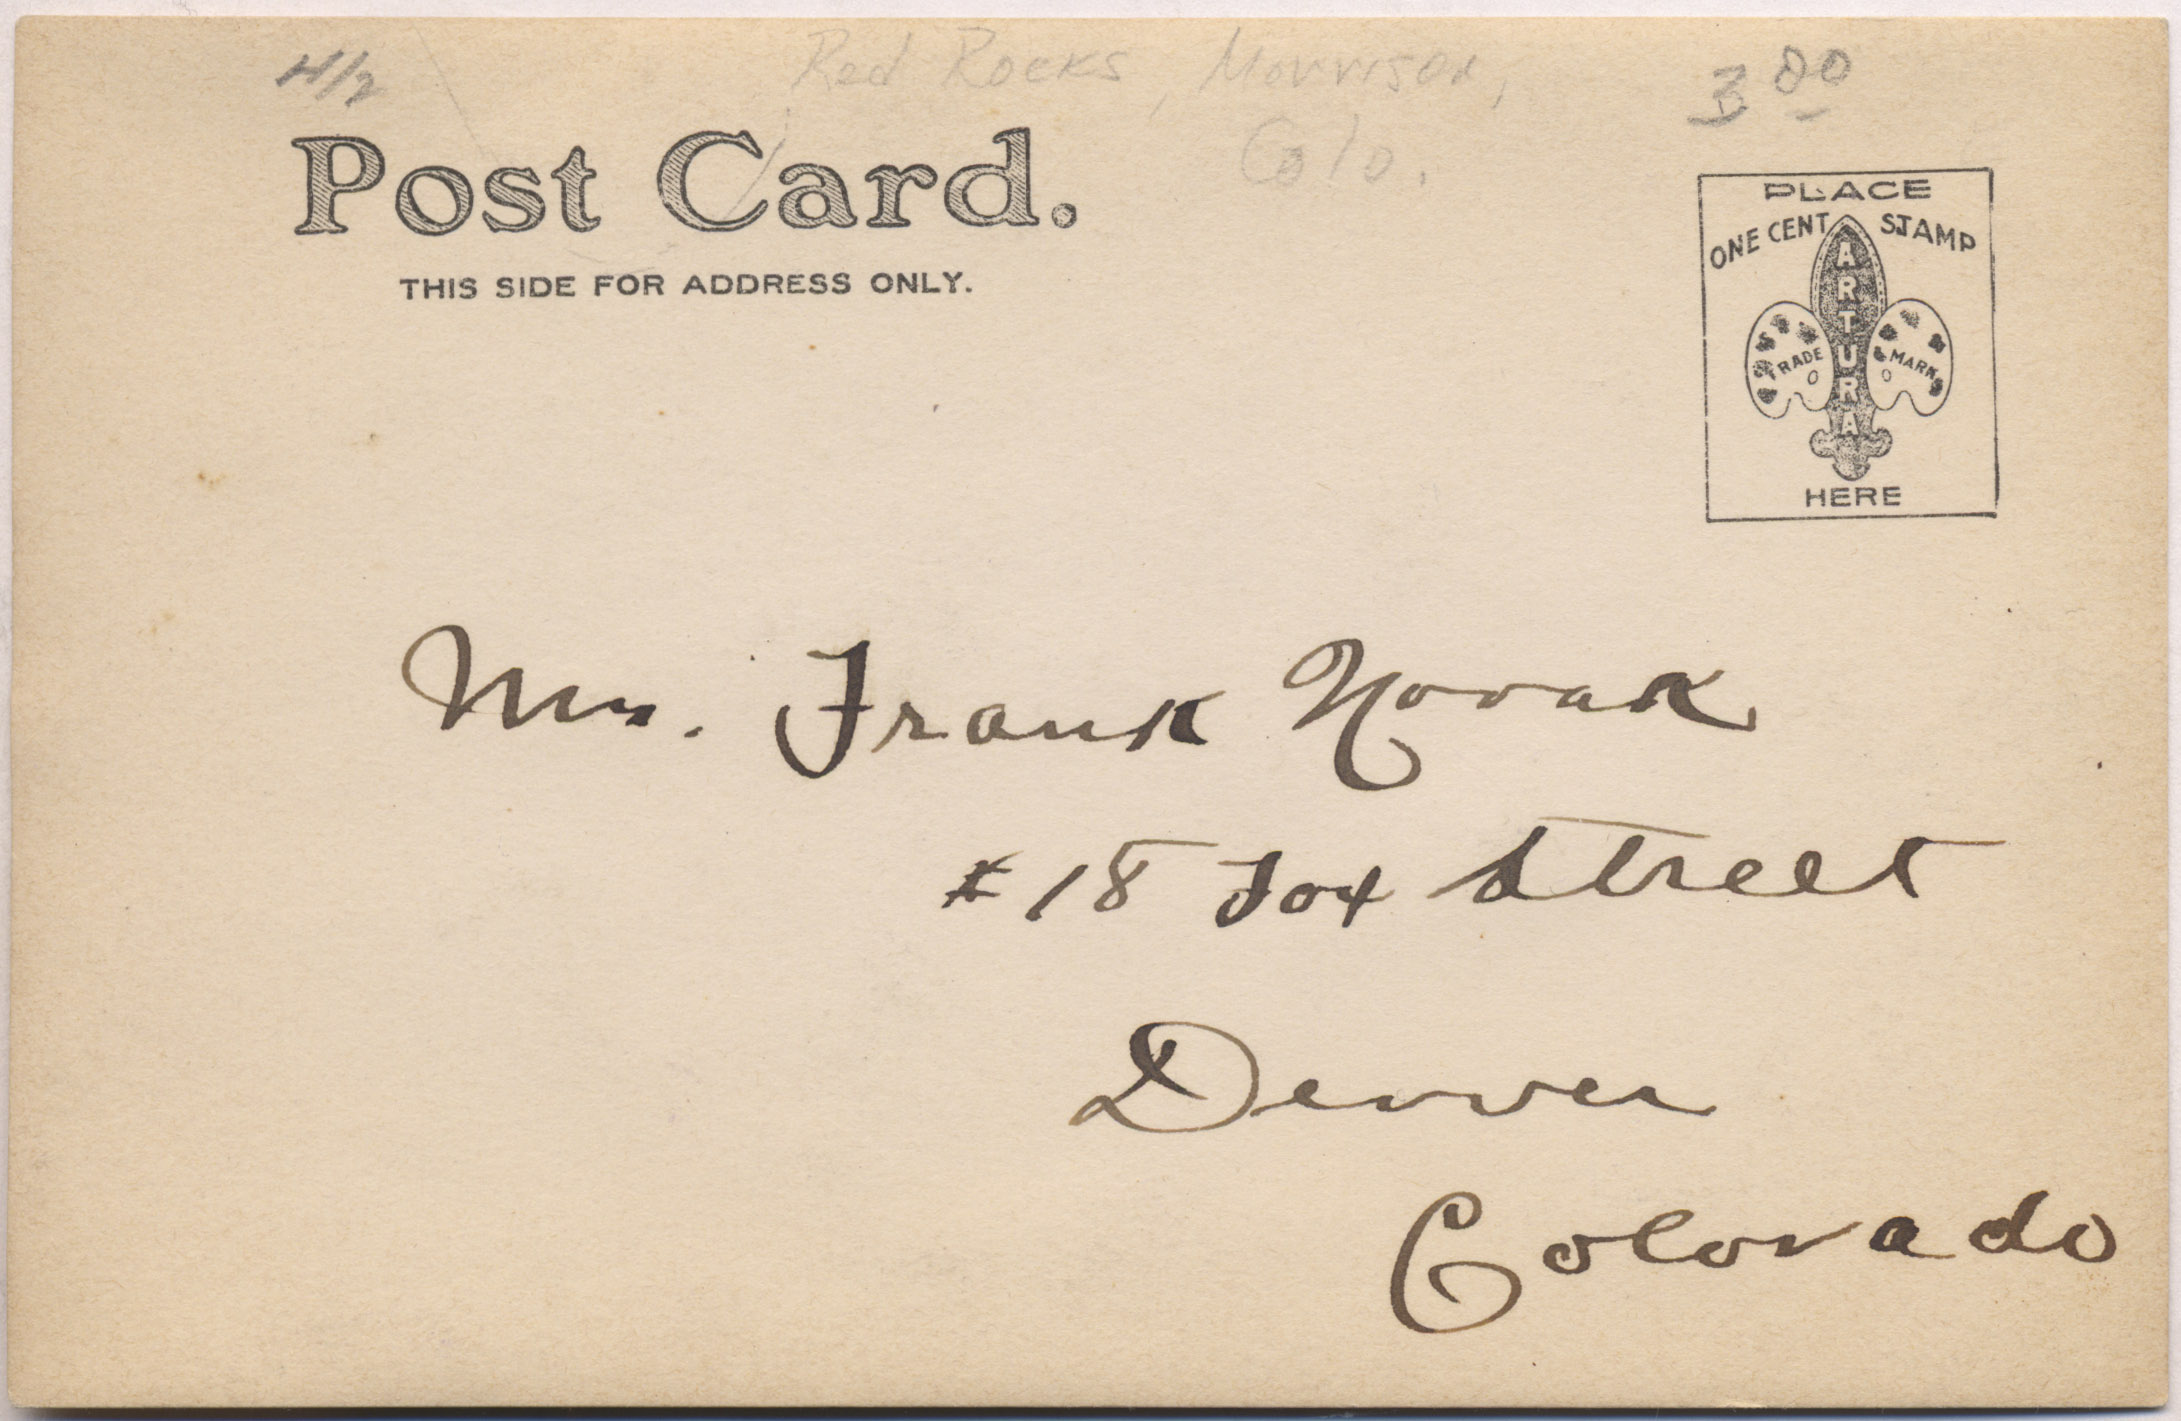 H/2
Red Rocks, Morrison,
Colo.
3 00
Post Card.
THIS SIDE FOR ADDRESS ONLY.
PLACE
ONE CENT STAMP
ARTURA
TRADE MARK
HERE
Mrs. Frank Novak
#18 Fox Street
Denver
Colorado